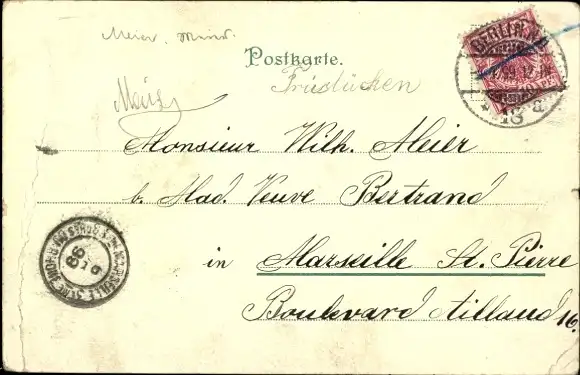 Meier,
Postkarte.
BERLIN N.
Monsieur Wilh. Meier
b. Mad. Veuve Bertrand
in Marseille St. Pierre
Boulevard Aillaud 16.
MARSEILLE